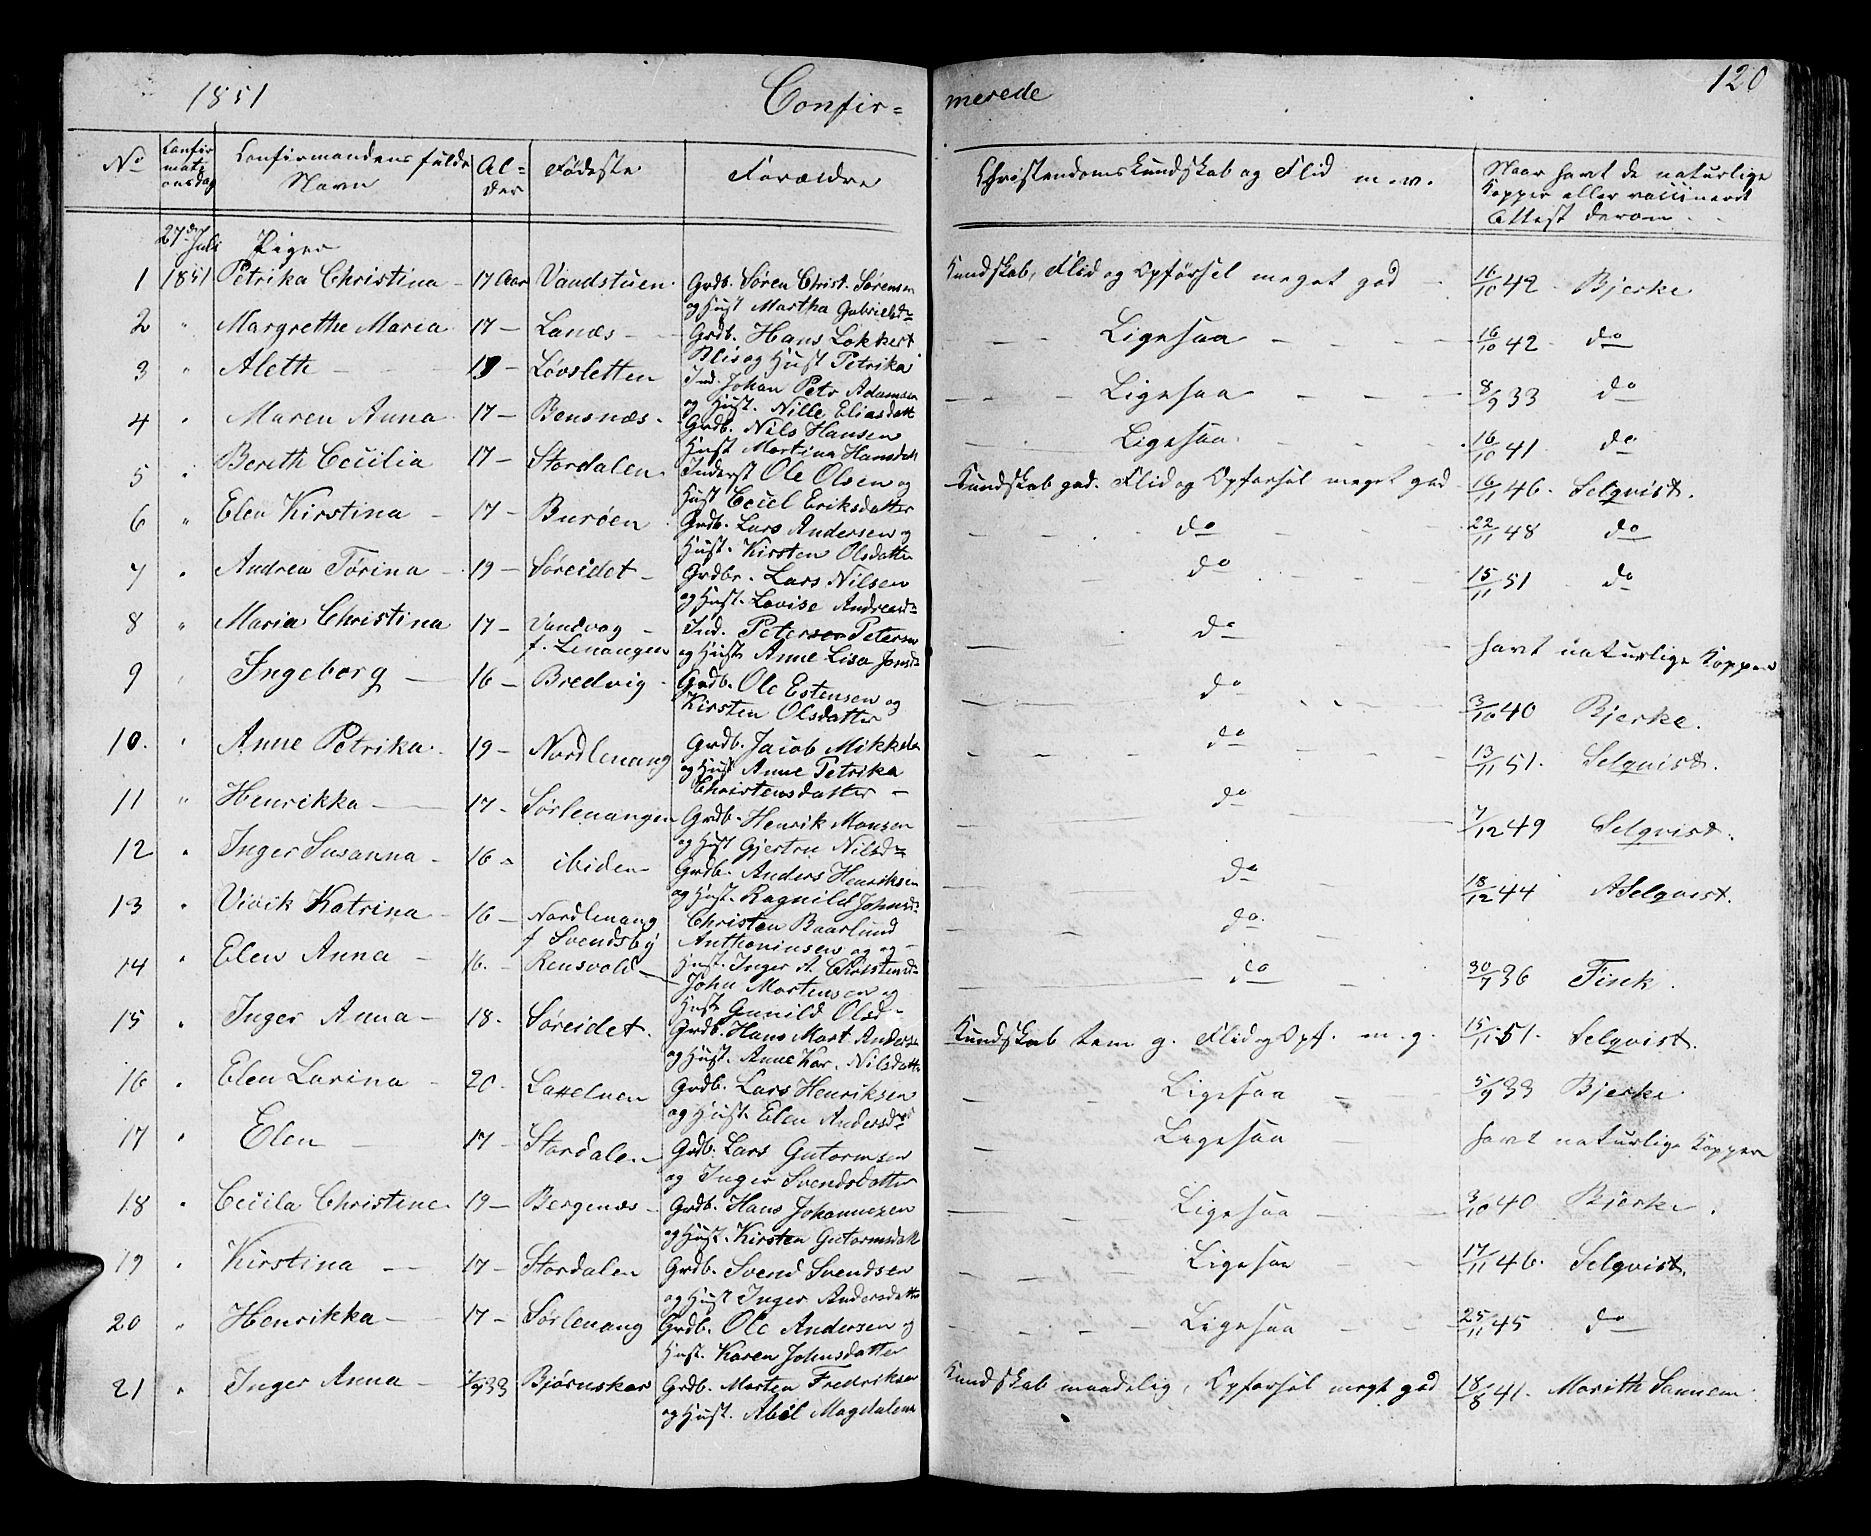 1851 Confir=
merede 120
No Confir mati onsdag Confirmandens fulde Navn Al= der Fødeste Forældre
Christendomskundskab og Flid m.v. Naar havt de naturlige Kopper eller vaccineret Attest derom
27de Juli Piger
1 1851 Petrika Christina 17 Aar Vandstuen Grdb. Søren Christ. Sørensen
og Hust Martha Gabrielsd
Kundskab, Flid og Opførsel meget god 16/10 42 Bjerke
2 " Margrethe Maria 17 Lanæs Grdb. Hans Lokkert
og Hust Petrika
Ligesaa 16/10 42 do
3 " Aleth Løvsletten Ind. Johan Petr Adamsen
og Hust. Nille Eliasdatt
Ligesaa 8/9 33 do
4 " Maren Anna 17 Bensnæs Grdb. Nils Hansen
Hust Martina Hansdatt
Ligesaa 16/10 41 do
5 " Bereth Cecilia 17 Stordalen Inderst Ole Olsen og
Hust Cecel Eriksdatter
Kundskab god. Flid og Opførsel meget god 16/11 46. Selqvist.
6 " Elen Kirstina 17 Burøen Grdb. Lars Andersen og
Hust. Kirsten Olsdatter
do 22/11 48 do
7 " Andrea Tørina 19 Søreidet Grdbr. Lars Nilsen
og Hust. Lovise Andreasd
do 15/11 51 do
8 " Maria Christina 17 Vandvag
f. Lenangen Ind. Peter Petersen
og Hust Anne Lisa Jensd
do havt naturlige Kopper
9 " Ingeborg 16 Bredvig Grdb. Ole Estensen og
Kirsten Olsdatter
do 3/10 40 Bjerke.
10. " Anne Petrika 19 Nordlenang Grdb. Jacob Mikkels
og Hust Anne Petrika
Christensdatter
do 13/11 51. Selqvist.
11 " Henrikka 17 Sørlenangen Grdb. Henrik Monsen
og Hust Gjertru Nilsd
do 7/12 49 Selqvist.
12 " Inger Susanna 16 ibiden Grdb. Anders Henriksen
og Hust. Ragnild Johnsd
do 18/12 44 ASelqvist.
13 " Vivik Katrina 16 Nordlenang
f Svendsby Christen Baarlund
Anthoniusen og
Hust. Inger A. Christensd
do.
14 " Elen Anna 16. Rensvold John Mortensen og
Hust Gunild Olsd
do 30/9 36 Fisek.
15 " Inger Anna 18. Søreidet. Grdb. Hans Mort. Anders
og Hust. Anne Kar. Nilsdatt
Kundskab tem g. Flid og Opf. m. g. 15/11 51. Selqvist.
16 " Elen Larina 20 Grdb. Lars Henriksen
og Hust. Elen Andersd
Ligesaa 5/9 33 Bjerke
17 " Elen 17 Stordalen Grdb. Lars Gutormsen
og Inger Svendsdatter
Ligesaa havt naturlige Kopper
18 " Cecila Christine 19 Bergenæs Grdb. Hans Johannesen
og Hust. Kirsten Gutormsdatt
Ligesaa 3/10 40 Bjerke.
19 " Kirstina 17 Stordalen Grdb. Svend Svendsen
og Hust Inger Andersdatte
Ligesaa 17/11 46. Selqvist.
20 " Henrikka 17 Sørlenang Grdb. Ole Andersen og
Hust. Karen Johnsdatter
Ligesaa 25/11 45 do
21 " Inger Anna Bjørnskar Grdb. Morten Fredriksen
og Hust. Abil Magdalena
Kundskab maadelig, Opførsel megt god 18/8 41. Marith Sannem